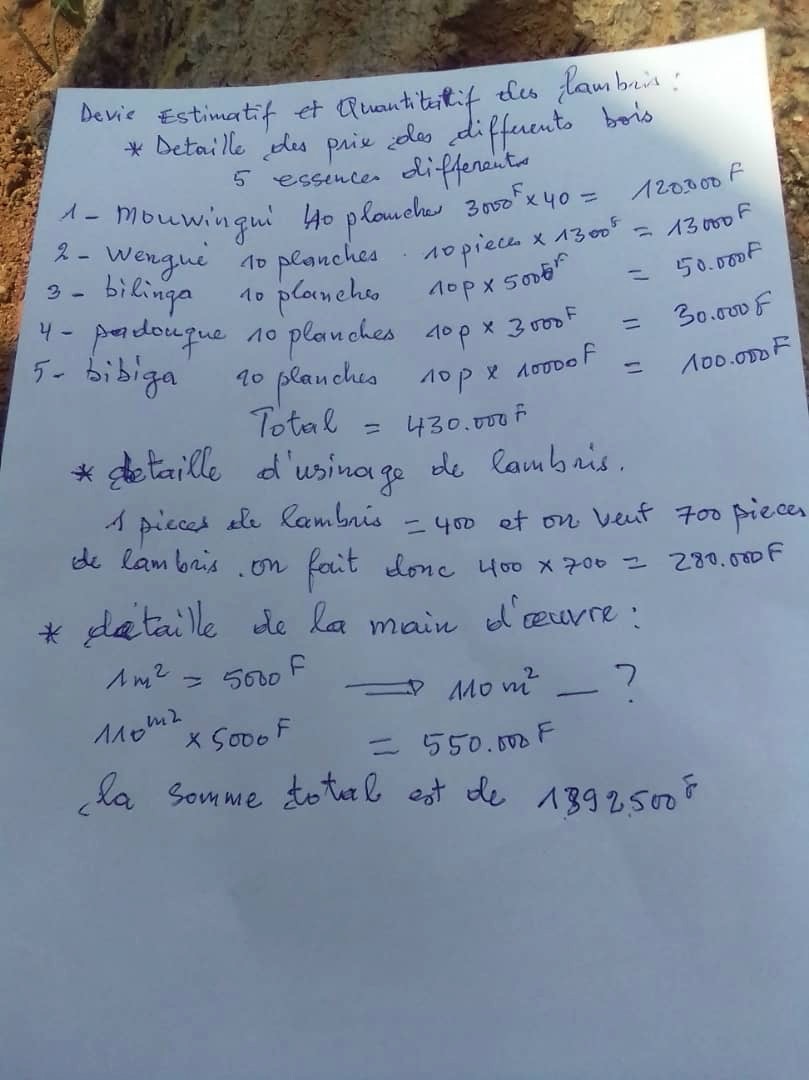 Devie Estimatif et Quantitatif des lambris :
* Detaille des prix des differents bois
5 essences differentes
1 - Mouwingui 40 planches 3000F x 40 = 120.000F
2 - Wengué 10 planches . 10 pieces x 1300F = 13000F
3 - bilinga 10 planches 10p x 5000F = 50.000F
4 - padouque 10 planches 10p x 3000F = 30.000F
5 - bibiga 10 planches 10p x 10000F = 100.000F
Total = 430.000F
* detaille d'usinage de lambris.
1 pieces de lambris = 400 et on veut 700 pieces
de lambris . on fait donc 400 x 700 = 280.000F
* détaille de la main d'œuvre :
1m² = 5000F ⟹ 110m² — ?
110m² x 5000F = 550.000F
la somme total est de 1392.500F